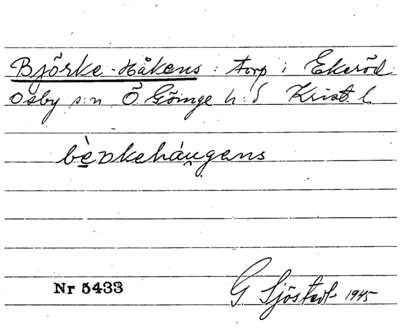 Björke-Håkens: torp i Ekeröd
Osby s:n Ö Göinge h:d Krist. l.
bè̱ŋkeháu̯gens
Nr 5433
G Sjöstedt 1945